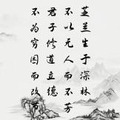 芝兰生于深林
不以无人而不芳
君子修道立德
不为穷困而改